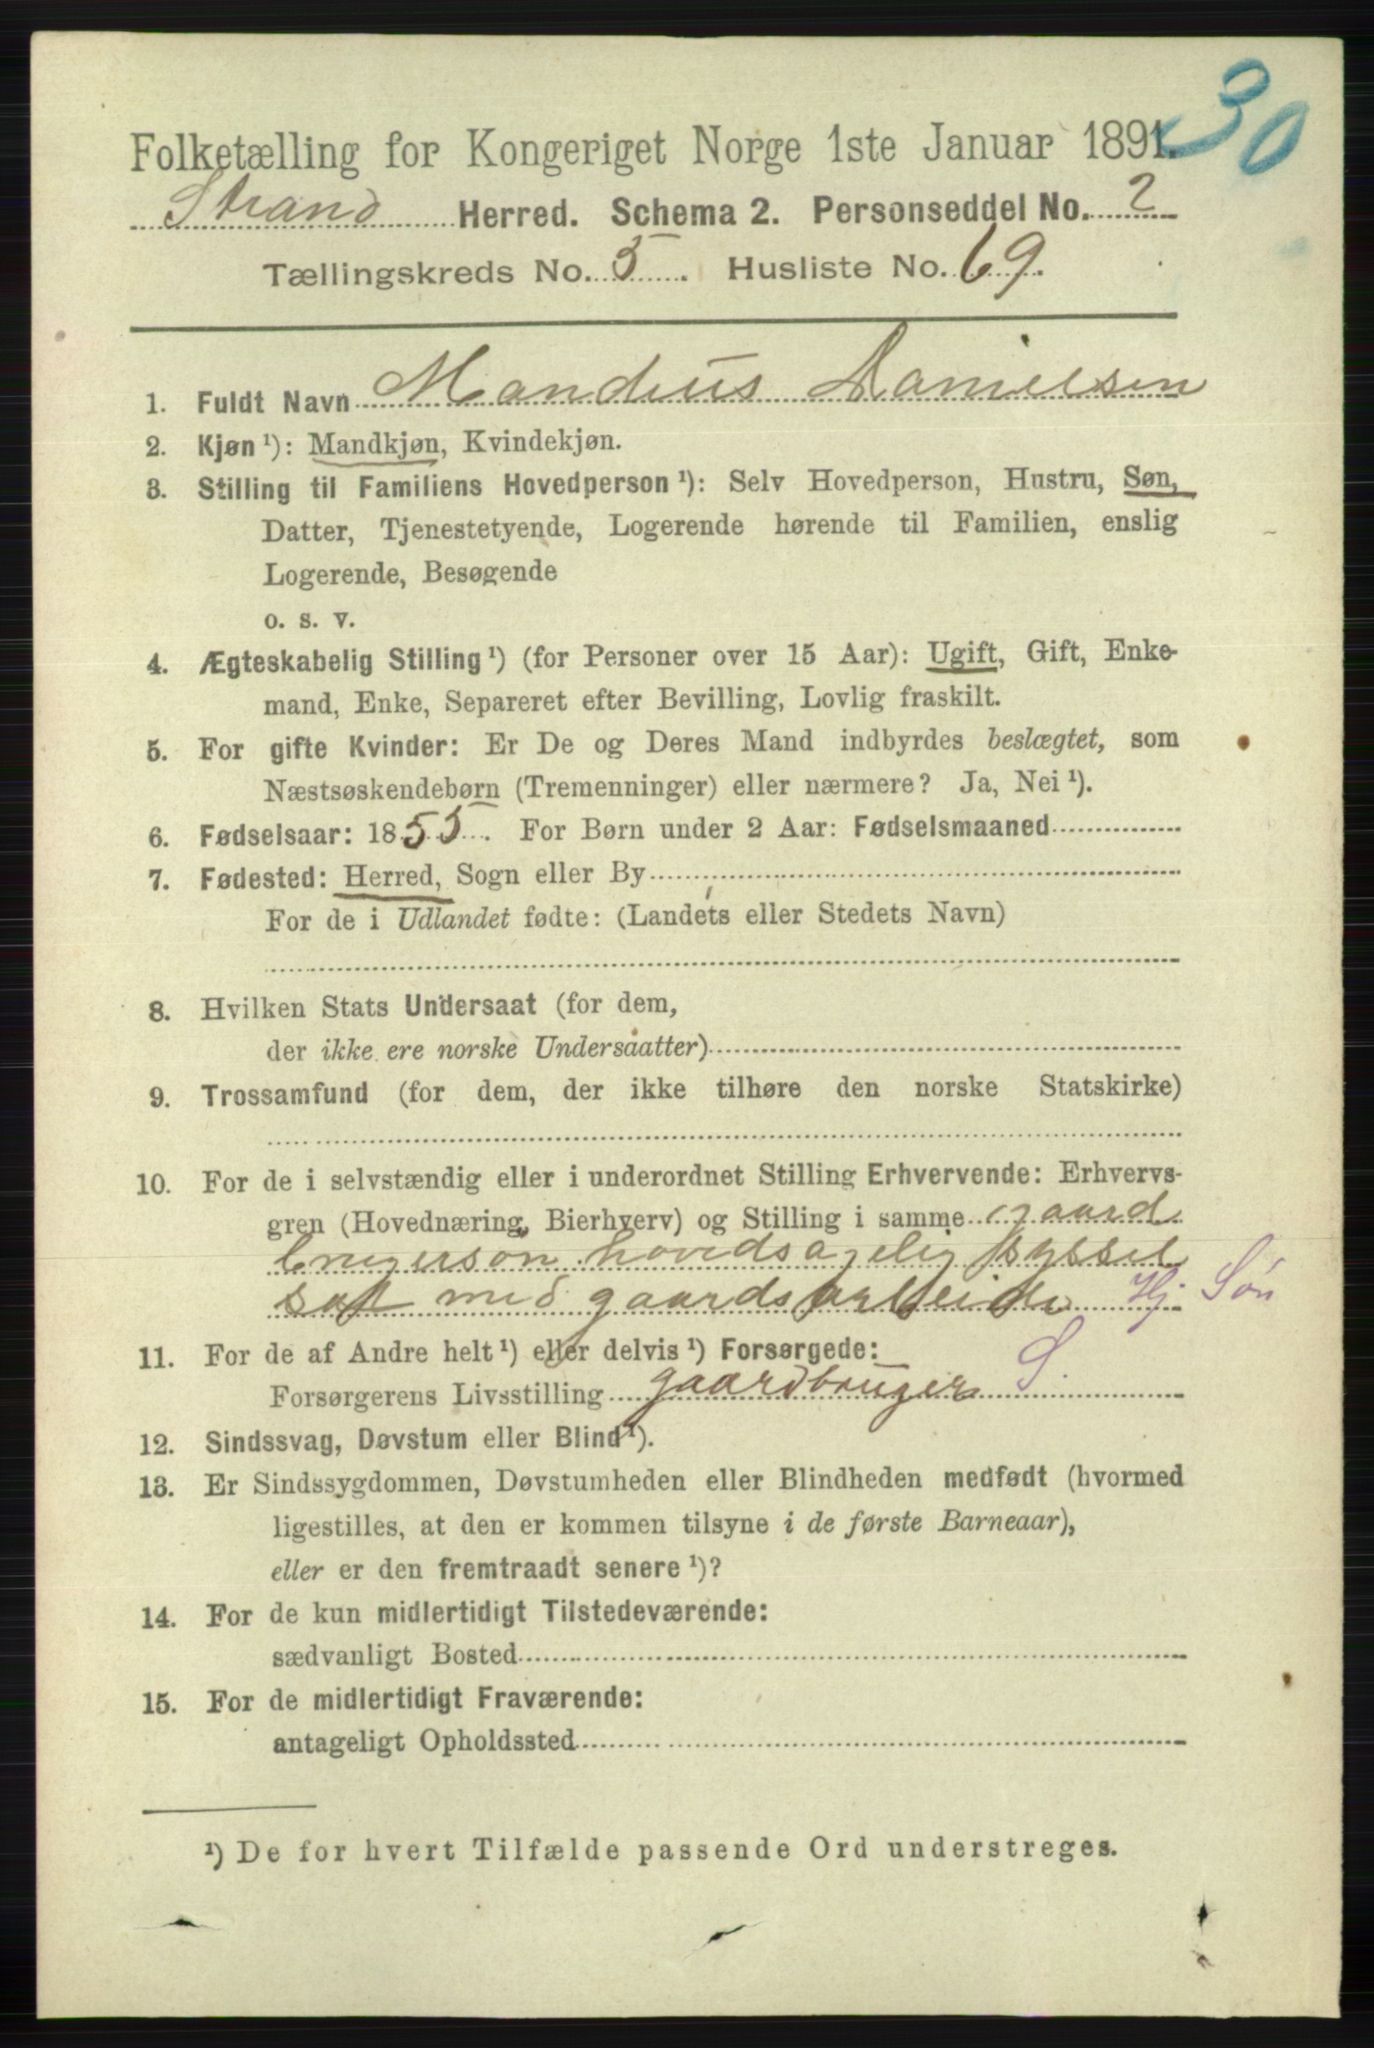 30
Folketælling for Kongeriget Norge 1ste Januar 1891.
Strand Herred. Schema 2. Personseddel No. 2
Tællingskreds No. 5. Husliste No. 69.
1. Fuldt Navn Mandius Danielsen
2. Kjøn ¹): Mandkjøn, Kvindekjøn.
3. Stilling til Familiens Hovedperson ¹): Selv Hovedperson, Hustru, Søn,
Datter, Tjenestetyende, Logerende hørende til Familien, enslig
Logerende, Besøgende
o. s. v.
4. Ægteskabelig Stilling ¹) (for Personer over 15 Aar): Ugift, Gift, Enke-
mand, Enke, Separeret efter Bevilling, Lovlig fraskilt.
5. For gifte Kvinder: Er De og Deres Mand indbyrdes beslægtet, som
Næstsøskendebørn (Tremenninger) eller nærmere? Ja, Nei ¹).
6. Fødselsaar: 1855. For Børn under 2 Aar: Fødselsmaaned
7. Fødested: Herred, Sogn eller By
For de i Udlandet fødte: (Landets eller Stedets Navn)
8. Hvilken Stats Undersaat (for dem,
der ikke ere norske Undersaatter)
9. Trossamfund (for dem, der ikke tilhøre den norske Statskirke)
10. For de i selvstændig eller i underordnet Stilling Erhvervende: Erhvervs-
gren (Hovednæring, Bierhverv) og Stilling i samme gaard
brugersøn hovedsagelig syssel
sat med gaardsarbeide Hj. Søn
11. For de af Andre helt ¹) eller delvis ¹) Forsørgede:
Forsørgerens Livsstilling gaardbruger S.
12. Sindssvag, Døvstum eller Blind ¹).
13. Er Sindssygdommen, Døvstumheden eller Blindheden medfødt (hvormed
ligestilles, at den er kommen tilsyne i de første Barneaar),
eller er den fremtraadt senere ¹)?
14. For de kun midlertidigt Tilstedeværende:
sædvanligt Bosted
15. For de midlertidigt Fraværende:
antageligt Opholdssted
¹) De for hvert Tilfælde passende Ord understreges.